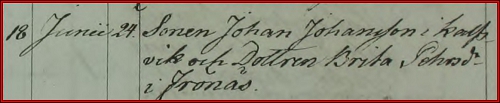 18 Junii 24. Sonen Johan Johansson i Kalf
vik och Dottren Brita Pehrsdr
i Fronäs.